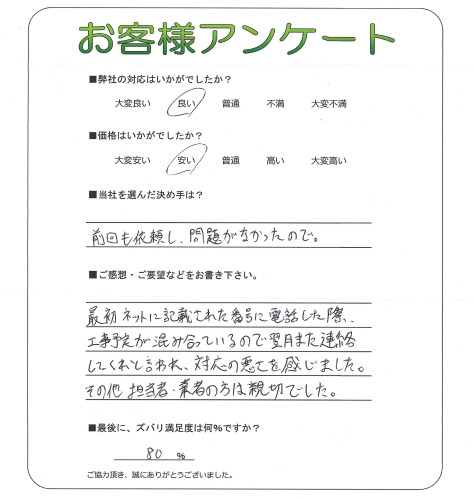 お客様アンケート
■弊社の対応はいかがでしたか？
大変良い 良い 普通 不満 大変不満
■価格はいかがでしたか？
大変安い 安い 普通 高い 大変高い
■当社を選んだ決め手は？
前回も依頼し、問題がなかったので。
■ご感想・ご要望などをお書き下さい。
最初ネットに記載された番号に電話した際、
工事予定が混み合っているので翌月また連絡
してくれと言われ、対応の悪さを感じました。
その他担当者・業者の方は親切でした。
■最後に、ズバリ満足度は何%ですか？
80 %
ご協力頂き、誠にありがとうございました。